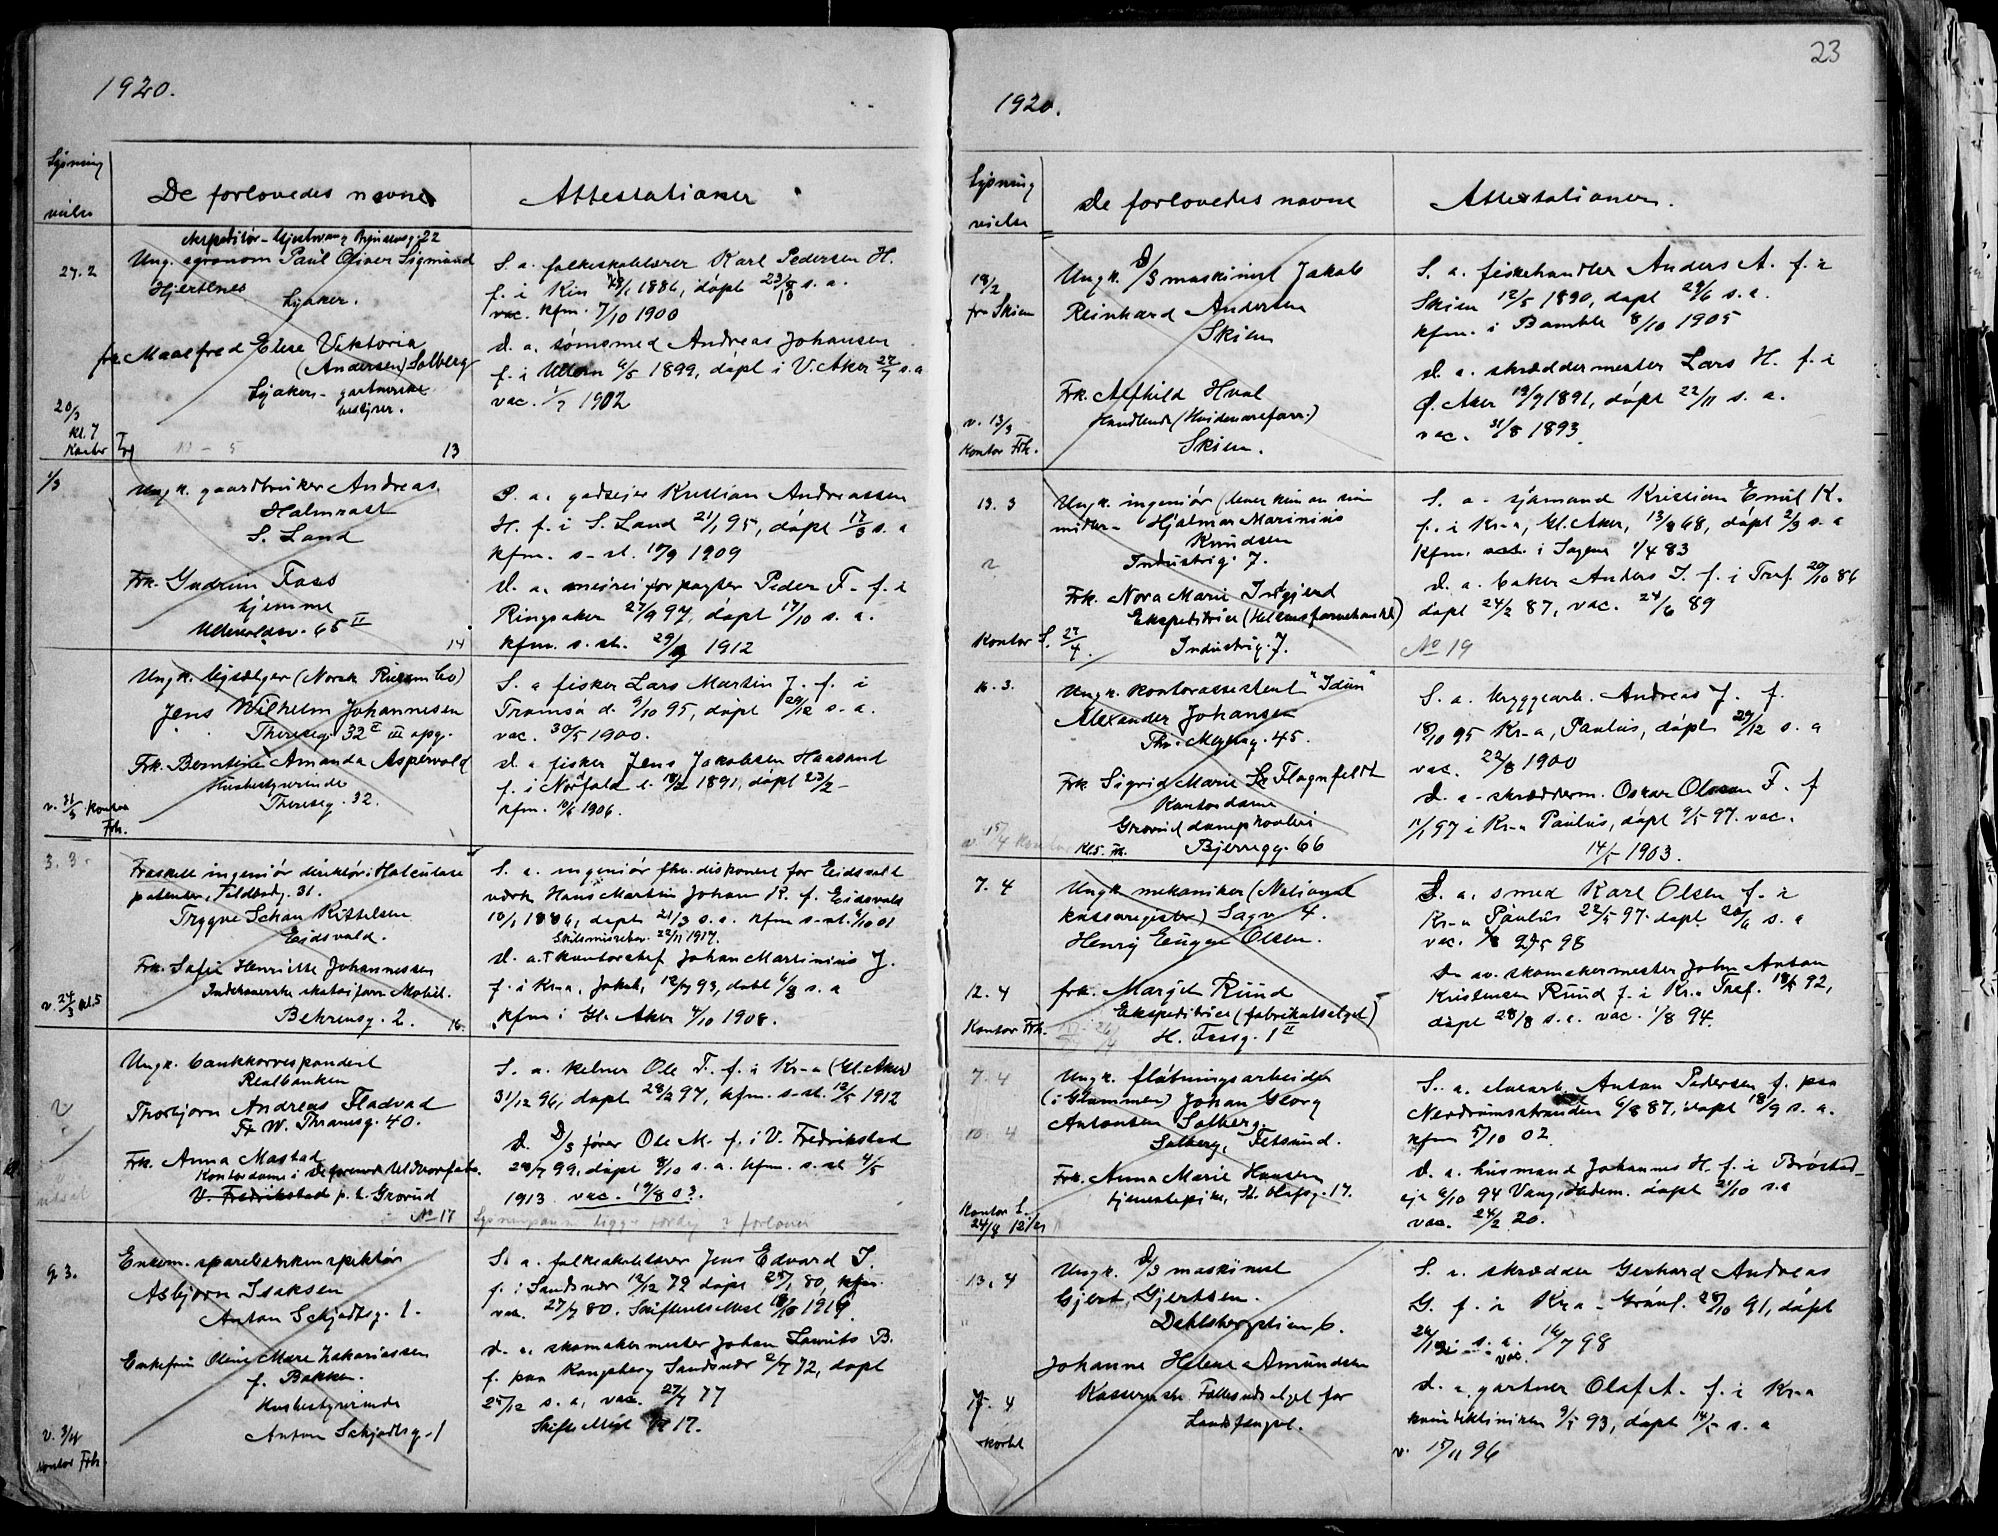 1920.
Lysning
vielse
De forlovedes navne
Attestationer
27.2
Ung. agronom Paul Oliver Sigmund
Hjertenes
Lysaker.
frk. Maalfred Elise Viktoria
(Andersen) Solberg
Lysaker - gartnerske
bestyrer.
20/3
kl. 7
Kontor
13
S. a. folkeskolelærer Karl Pedersen H.
f. i Kin 1886, døpt s. a.
vac. kfm. 7/10 1900
d. a. sømsmed Andreas Johansen
f. i Ullern 6/5 1899, døpt i V. Aker s. a
vac. 1902
1/3
Ungk. gaardbruker Andreas
Holmrast
S. Land
Frk. Gudrun Foss
hjemme
Ullevoldsv. 65 II
14
S. a. godseier Kristian Andreassen
H. f. i S. Land 21/1 95, døpt 17/3 s. a
kfm. s. st. 1909
d. a. meieriforpagter Peder F. f. i
Ringsaker 27/9 97, døpt 17/10 s. a.
kfm. s. st. 29/9 1912
Ungk. (Norsk Co)
Jens Wilhelm Johannesen
Theresesg. 32 III opg.
Frk. Berntine Amanda Aspervold
Husbestyrerinde
Theresesg. 32.
v. 31/3 Kontor
Frk.
S. a fisker Lars Martin J. f. i
Tromsø d. 9/10 95, døpt 29/12 s. a.
vac. 30/5 1900.
d. a fisker Jens Jakobsen Haasand
f. i Nordfold d. 1891, døpt 23/2
kfm. 10/6 1906.
3. 3.
Fraskilt ingeniør direktør i
patenter, 31.
Trygve Schau Kittelsen
Eidsvold.
Frk. Sofie Henriette Johannessen
Behrensg. 2.
16.
v. 24/3 kl. 5
S. a. ingeniør fhv. disponent for Eidsvold
værk Hans Martin Johan K. f. Eidsvold
10/1 1886, døpt 21/3 s. a. kfm s. st. 01
Skilsmisseber. 22/11 1917.
d. a. kontorchef Johan Martinius J.
f. i Kr-a, Jakob, 12/7 93, døbt 6/8 s. a
kfm i Gl. Aker 4/10 1908.
Ungk. bankkorrespondent
Realbanken
Thorbjørn Andreas Fladvad
Fr W. Thranesg. 40.
Frk. Anna Mastad
Kontordame i De forenede Uldvarefabr.
V. Fredrikstad p. t. Grorud
No 17
S. a. kelner Ole T. f. i Kr-a (Gl. Aker)
31/12 96, døpt 28/2 97, kfm. s. st. 12/5 1912
d. D/S fører Ole M. f. i V. Fredrikstad
99, døpt 8/10 s. a. kfm. s. st 4/5
1913 vac. 19/8 03.
9 3.
Enkem. sparebankinspektør
Asbjørn Isaksen
Anton Schjødtsg. 1.
Enkefru Oline Mare Zakariassen
f. Bakken.
Husbestyrerinde
Anton Schjødtsg. 1
v. 3/4
Kontor Frk.
S. a. folkeskolelærer Jens Edvard I.
f. i Sandsvær 12/12 79 døpt 80, kfm.
vac. 27/7 80. Skifterets Attest 1919.
d. a. skomakermester Johan Laurits B.
f. paa Kongsberg Sandsvær 2/7 72, døpt
25/12 s. a, vac. 27/7 77
Skifte Attest 17.
23
1920.
Lysning
vielse
De forlovedes navne
Attestationer.
19/2
fra Skien
Ungk. D/S maskinist Jakob
Reinhard Andersen
Skien
Frk. Alfhild Hval
Handlende (Hvidevareforr.)
Skien.
v. 13/3
Kontor Frk.
S. a. fiskehandler Anders A. f. i
Skien 12/5 1890, døpt 29/6 s. a.
kfm. i Bamble 8/10 1905
d. a. skræddermester Lars H. f. i
Ø. Aker 19/9 1891, døpt 22/11 s. a.
vac. 31/8 1893.
13. 3
Ungk. ingeniør (lever kun av sine
midler - Hjalmar Marinius
Knudsen
Industrig. 7.
Frk. Nora Marie Indgjerd
Ekspeditrice
Industrig. 7.
Kontor S. 27/4
S. a. sjømand Kristian Emil K.
f. i Kr-a, Gl. Aker, 13/3 68, døpt 2/3 s. a
Kfm. i Sagene 1/4 83
d. a. baker Anders I. f. i Tref. 20/10 86
døpt 24/2 87, vac. 24/6 89
No 19
16. 3.
Ungk. kontorassistent "Idun"
Alexander Johansen
Thv. Meyersg. 45.
Frk. Sigrid Marie Flognfeldt
Kontordame
Grorud dampkokeri
Bjerregg. 66
v. 15/4 Kontor kl. 5. Frk.
S. a. bryggearb. Andreas J. f.
18/10 95 Kr-a, Paulus, døpt 29/12 s. a
vac. 22/8 1900
d. a. skrædderm. Oskar Olsson F. f
11/1 97 i Kr-a Paulus, døpt 9/5 97. vac.
14/5 1903.
7. 4
Ungk. mekaniker (National
kassaregister) Sagv. 4.
Henry Eugen Olsen.
12. 4
frk. Margit Ruud
Ekspeditrice (fabrikutsalget)
H. Fossg. 1 II
Kontor Frk.
S. a. smed Karl Olsen f. i
Kr-a Paulus 22/5 97. døpt 20/6 s. a
vac. 98
D. av. skomakermester John Anton
Kristensen Ruud f. i Kr.a Tref. 92,
døpt 28/8 s. a. vac. 1/8 94.
7. 4
Ungk. fløtningsarbeider
(i Glommen) Johan Georg
Antonsen Solberg
Solberg, Fetsund.
10. 4
Frk. Anna Marie Hansen
tjenestepike, St. Olafsg. 17.
Kontor S.
24/4 12
S. a. elvearb. Anton Pedersen f. paa
Nerdrumsstranden 6/8 87, døpt 18/9 s. a.
kfm 5/10 02.
d. a. husmand Johannes H. f. i Brøstad-
eje 6/10 94 Vang, Hedem. døpt 21/10 s. a
vac. 24/2 20.
13. 4
Ungk. D/S maskinist
Gjert Gjertsen.
Dehlsbergstien 6.
Johanne Helene Amundsen
Kassererske Fællesudvalget for
Landsfængsl.
17. 4
S. a. skrædder Gerhard Andreas
G. f. i Kr.a - Grønl. 28/10 91, døpt
26/12 s. a. vac. 16/7 98
d. a. gartner Olaf A. f. i Kr-a
kvindeklinikken 9/3 93, døpt 14/5 s. a
v. 15/11 96